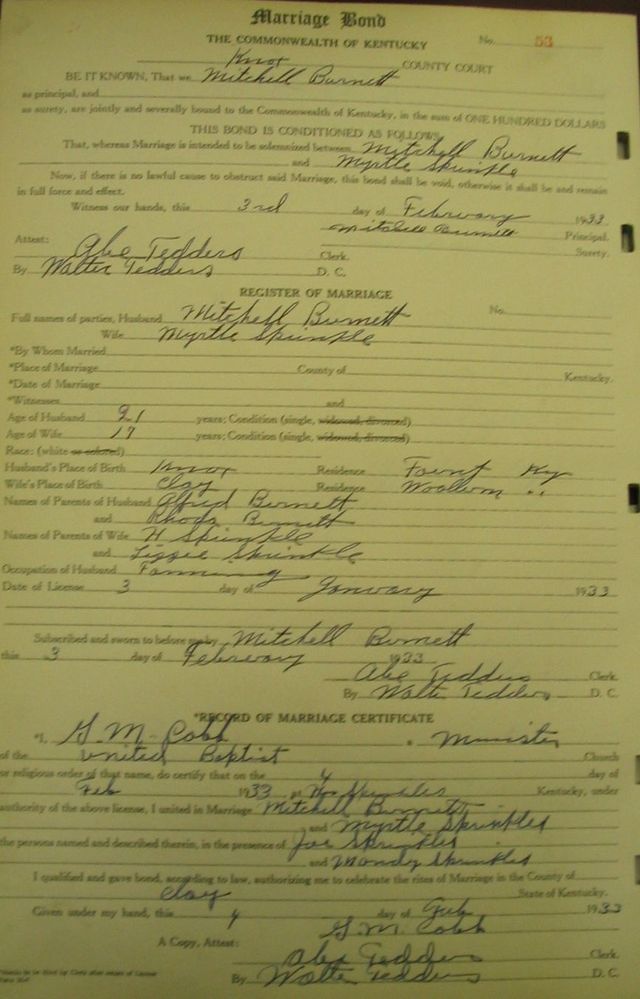 Marriage Bond
THE COMMONWEALTH OF KENTUCKY No. 53
Knox COUNTY COURT
BE IT KNOWN, That we Mitchell Burnett
as principal, and
as surety, are jointly and severally bound to the Commonwealth of Kentucky, in the sum of ONE HUNDRED DOLLARS
THIS BOND IS CONDITIONED AS FOLLOWS
That, whereas Marriage is intended to be solemnized between Mitchell Burnett
and Myrtle Sprinkle
Now, if there is no lawful cause to obstruct said Marriage, this bond shall be void, otherwise it shall be and remain
in full force and effect.
Witness our hands, this 3rd day of February 1933
Mitchell Burnett Principal.
Attest: Abe Tedders Clerk. Surety.
By Walter Tedders D. C.
REGISTER OF MARRIAGE
Full names of parties, Husband Mitchell Burnett No.
Wife Myrtle Sprinkle
*By Whom Married
*Place of Marriage County of Kentucky.
*Date of Marriage
*Witnesses and
Age of Husband 21 years; Condition (single, widowed, divorced)
Age of Wife 17 years; Condition (single, widowed, divorced)
Race: (white or colored)
Husband's Place of Birth Knox Residence Fount Ky
Wife's Place of Birth Clay Residence Woollum "
Names of Parents of Husband Alfred Burnett
and Rhoda Burnett
Names of Parents of Wife H Sprinkle
and Lizzie Sprinkle
Occupation of Husband Farming
Date of License 3 day of January 1933
Subscribed and sworn to before me by Mitchell Burnett
this 3 day of February 1933
Abe Tedders Clerk.
By Walter Tedders D. C.
*RECORD OF MARRIAGE CERTIFICATE
*I, G. M. Cobb a Minister
of the United Baptist Church
or religious order of that name, do certify that on the 4 day of
Feb 1933 at Sprinkles Kentucky, under
authority of the above license, I united in Marriage Mitchell Burnett
and Myrtle Sprinkles
the persons named and described therein, in the presence of Joe Sprinkles
and Mandy Sprinkles
I qualified and gave bond, according to law, authorizing me to celebrate the rites of Marriage in the County of
Clay State of Kentucky.
Given under my hand, this 4 day of Feb 1933
G. M. Cobb
A Copy, Attest: Abe Tedders Clerk.
By Walter Tedders D. C.